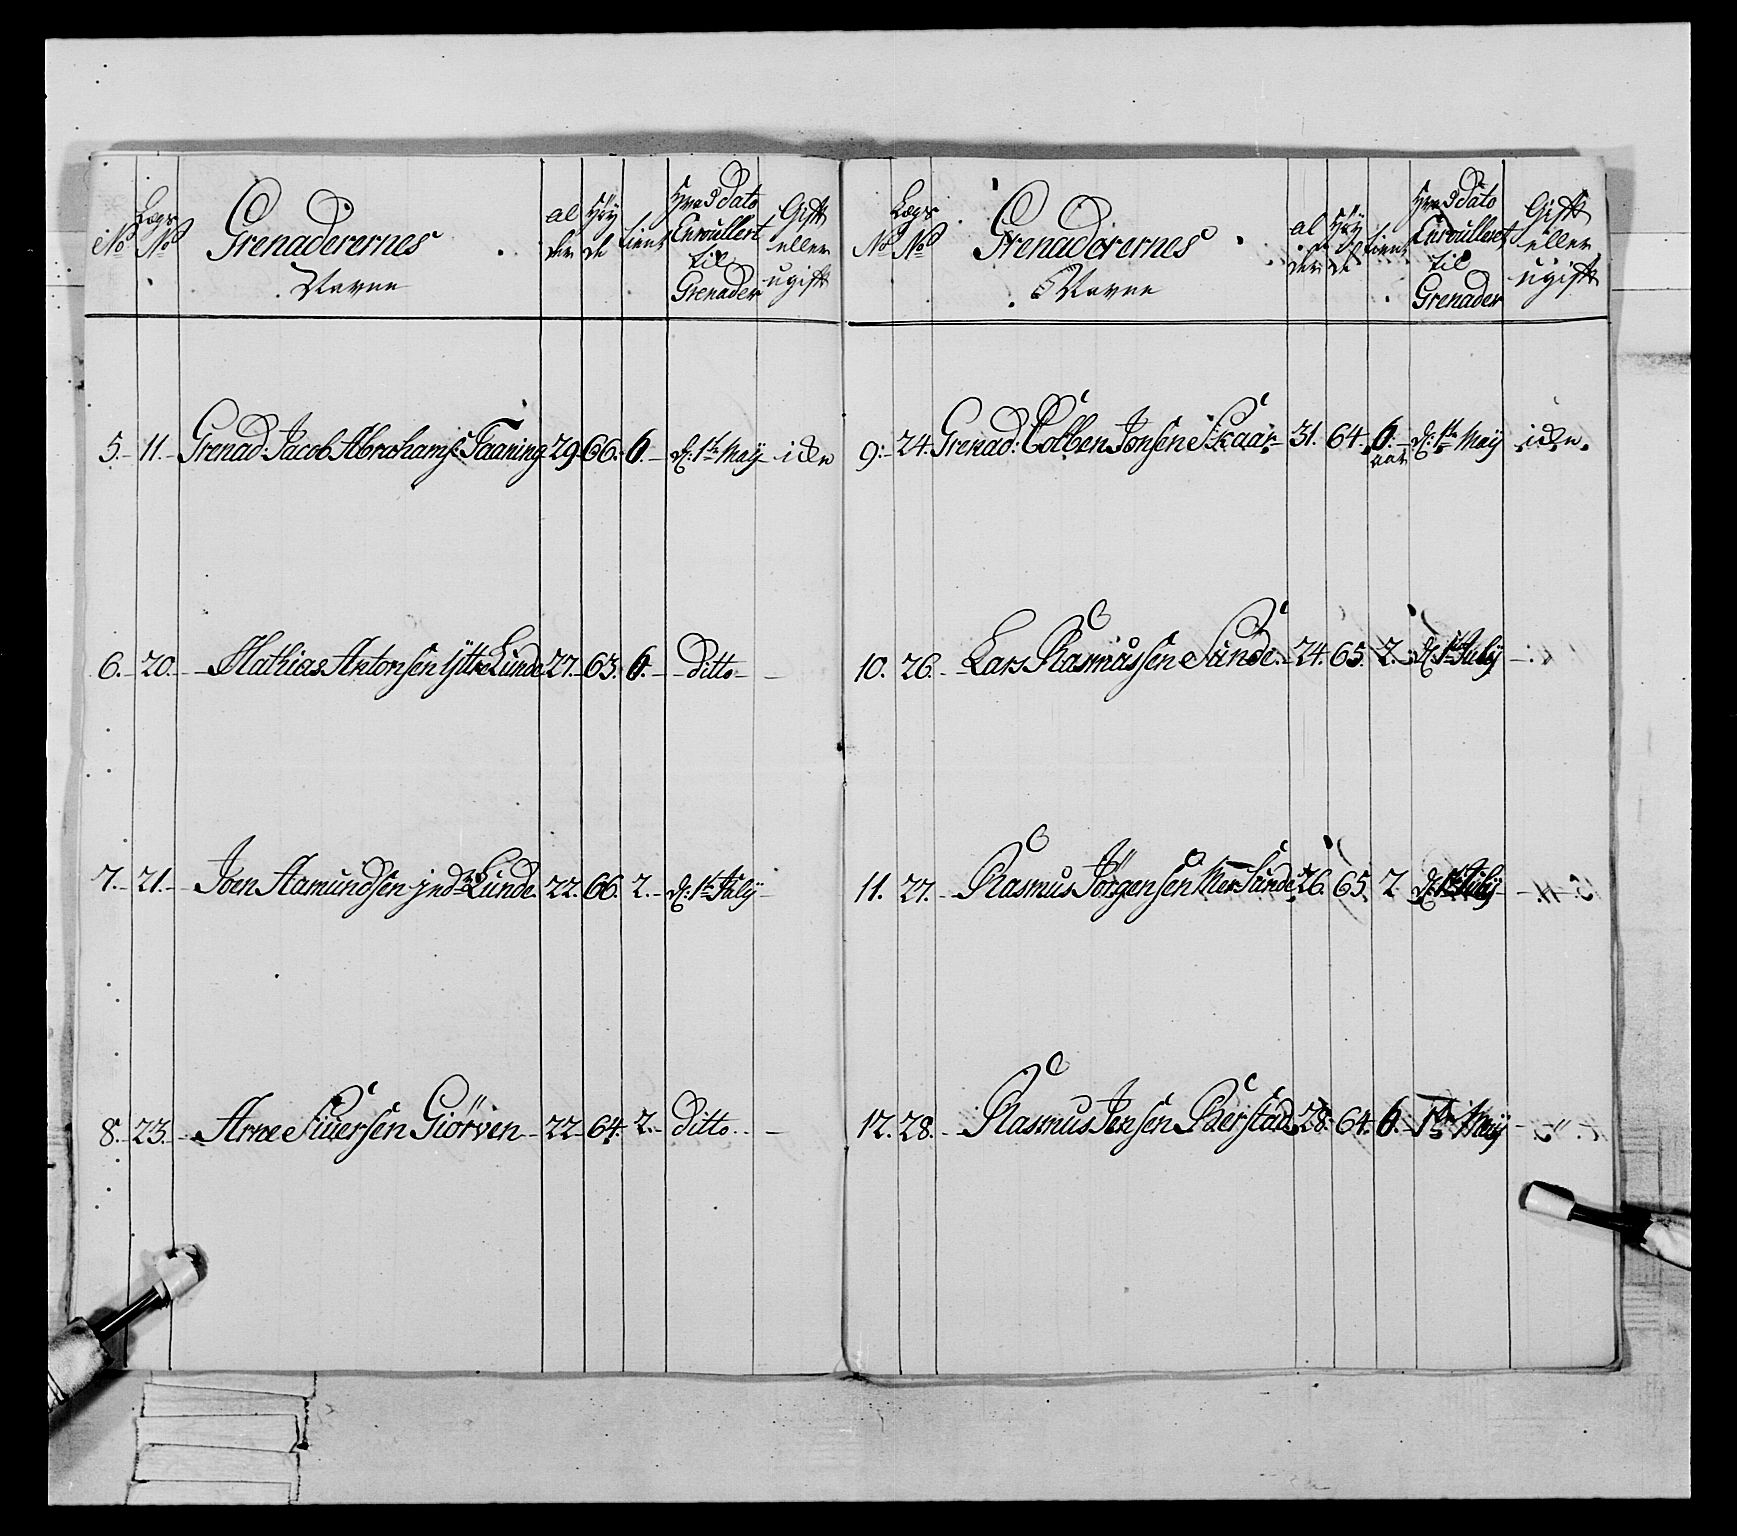 No Lægs No Grenaderernes Navne al der Høy de tient Hvad dato Enroullert til Grenader Gift eller ugift
5. 11. Grenad. Jacob Abrahams: Taaning 29 66. 6. d: 1te Maÿ
6. 20. Mathias Antonsen ÿttre Lunde 27. 63. 6. ditto
7. 21. Joen Aamundsen jnd: Lunde 22. 66. 2. d: 1te Julÿ
8. 23. Arne Siversen Giörven 22 64. 2. ditto
No Lægs No Grenaderernes Navne al der Høy de tient Hvad dato Enroullert til Grenader Gift eller ugift
9: 24. Grenad: Colben Jonsen Skaar 31. 64. 6. aar d: 1te Maÿ
10. 26. Lars Rasmussen Sunde 24. 65. 2. d: 1te Julÿ
11. 27. Rasmus Jörgensen Mer Sunde 26. 65. 2 d: 1te Julÿ
12. 28. Rasmus Jensen Berstad 28. 64. 6. 1te Maÿ